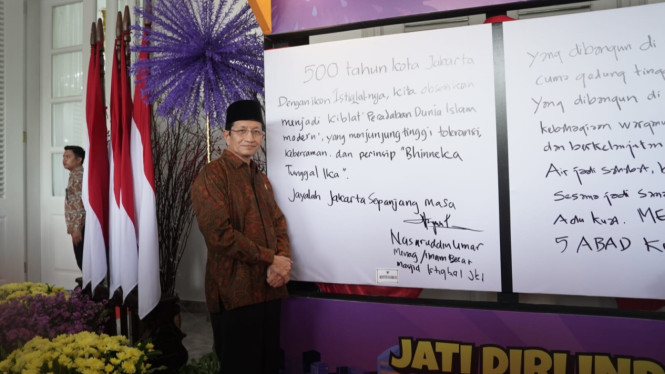 500 tahun kota Jakarta
Dengan ikon Istiqlalnya, kita
menjadi kiblat "Peradaban Dunia Islam
modern", yang menjunjung tinggi toleransi,
dan perinsip "Bhinneka
Tunggal Ika".
Jayalah Jakarta Sepanjang Masa
Nasaruddin Umar
Menag/Imam Besar
Masjid Istiqlal Jkt
Yang dibangun di
cuma gedung tingg
Yang dibangun di
warga
dan berkelanjutan
Air jadi sahabat,
Sesama jadi
Adu kuat. ME
5 ABAD K
JATI DIRI